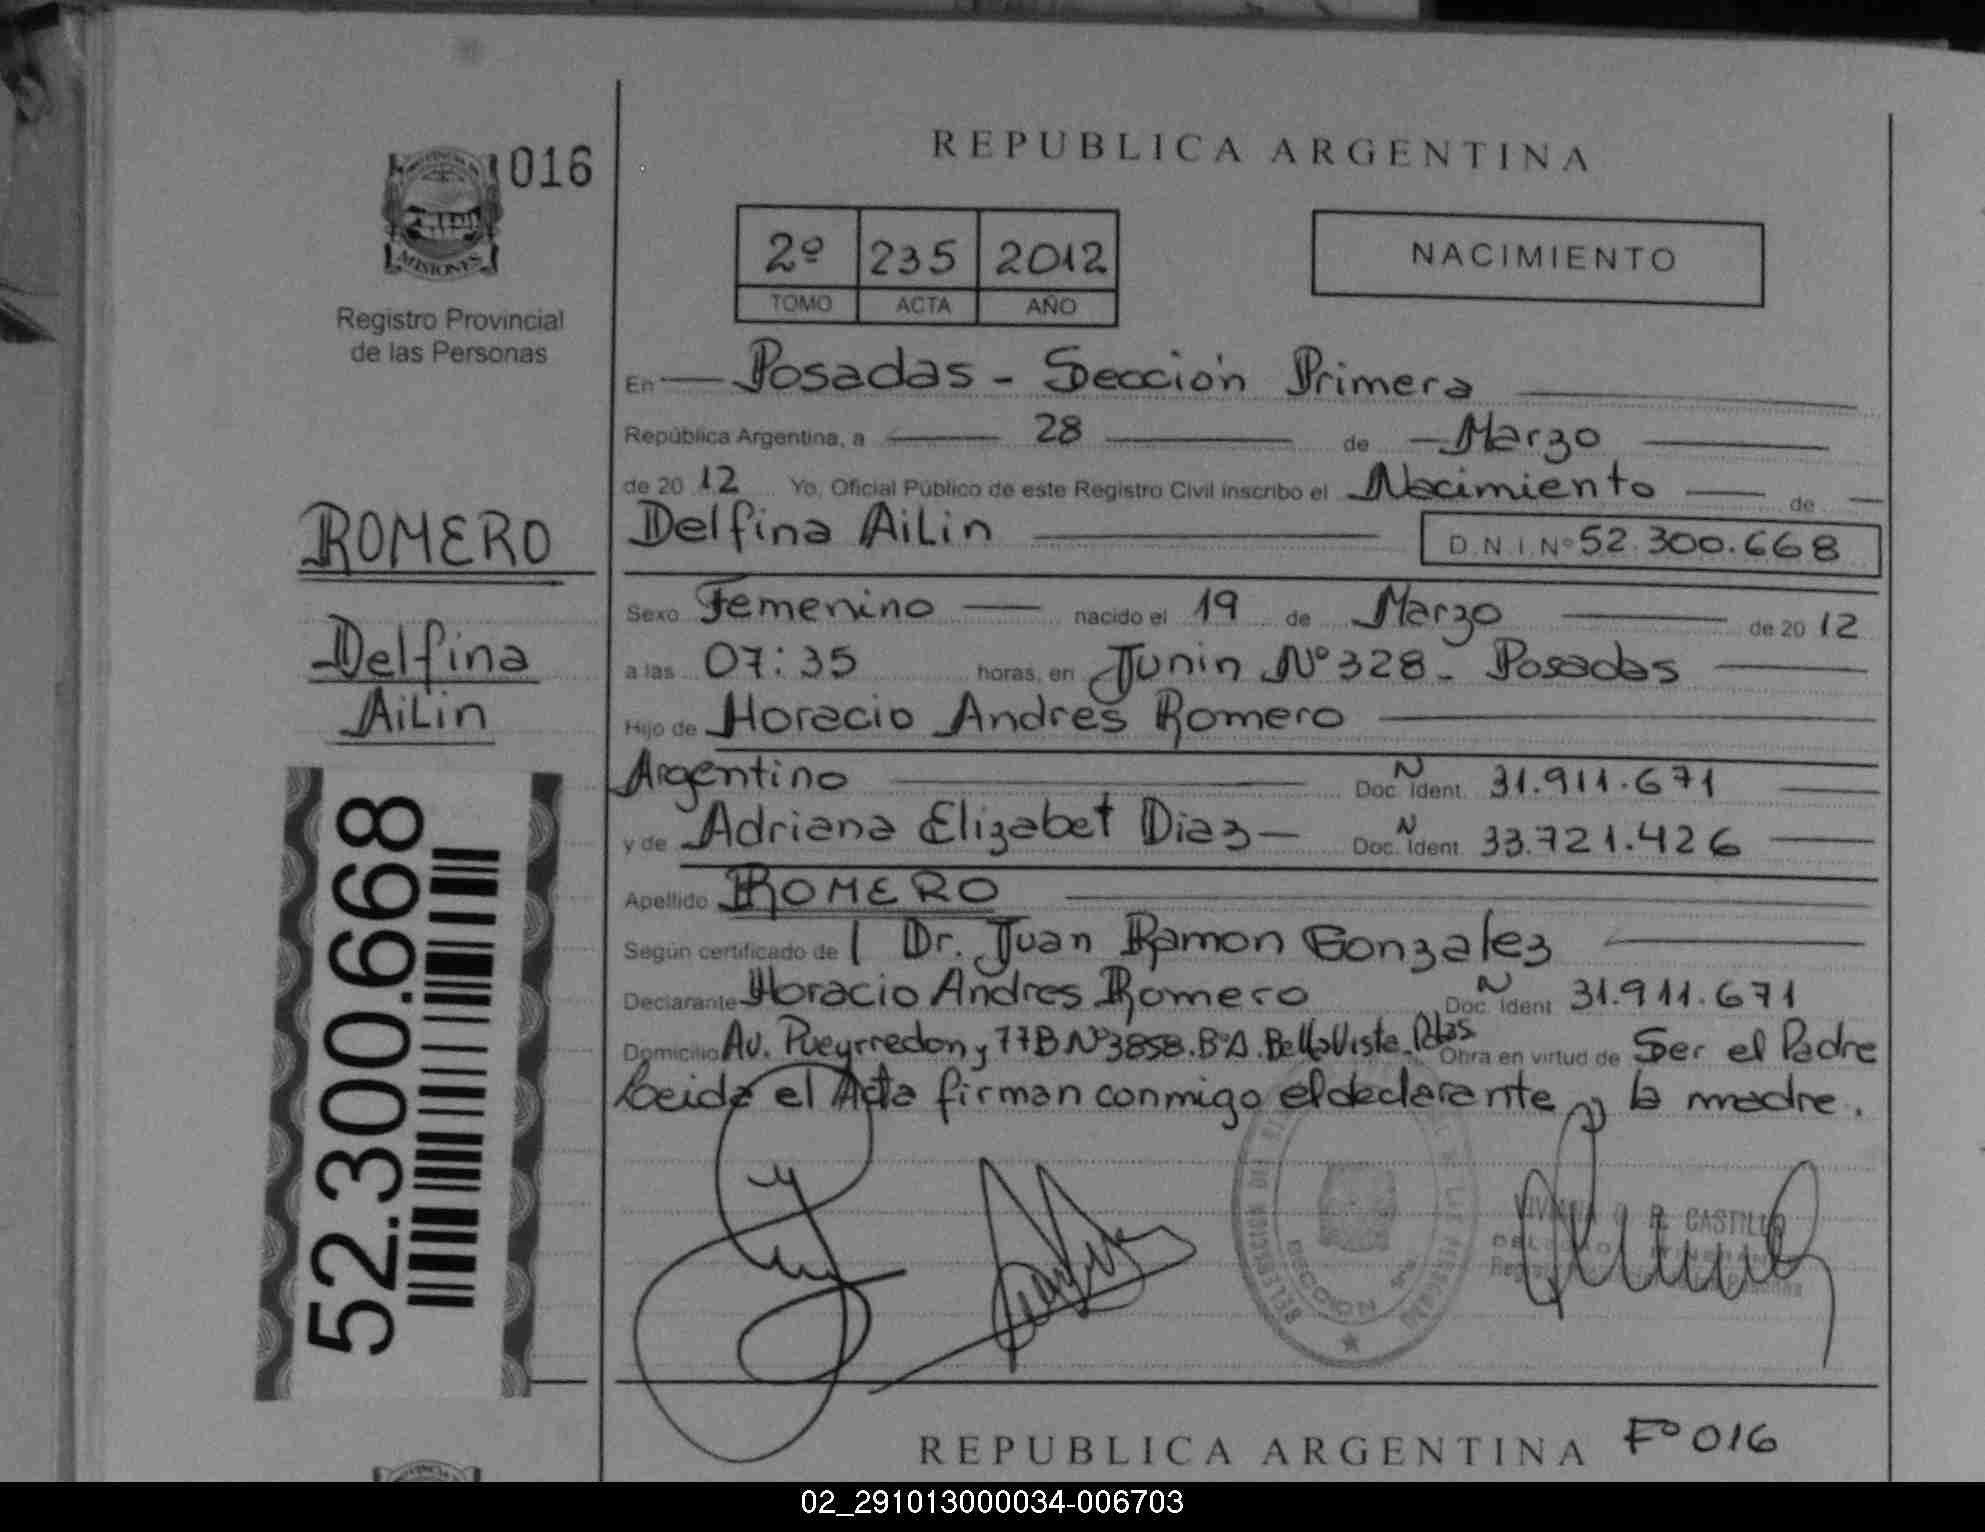 REPUBLICA ARGENTINA
016
MISIONES
Registro Provincial
de las Personas
2º 235 2012
TOMO ACTA AÑO
NACIMIENTO
En Posadas - Sección Primera
República Argentina, a 28 de Marzo
de 20 12 Yo, Oficial Público de este Registro Civil inscribo el Nacimiento de
Delfina AiLin D.N.I. Nº 52.300.668
ROMERO
Delfina
AiLin
52.300.668
Sexo Femenino nacido el 19 de Marzo de 20 12
a las 07:35 horas, en Junin Nº 328 - Posadas
Hijo de Horacio Andres Romero
Argentino Doc. Ident. N 31.911.671
y de Adriana Elizabet Diaz Doc. Ident. N 33.721.426
Apellido ROMERO
Según certificado de Dr. Juan Ramon Gonzalez
Declarante Horacio Andres Romero Doc. Ident. N 31.911.671
Domicilio Av. Pueyrredon y 77B Nº 3858. Bº A. Bella Vista. Pdas Obra en virtud de Ser el Padre
Leida el Acta firman conmigo el declarante y la madre.
SECCION
R. CASTILLO
REPUBLICA ARGENTINA Fº 016
02_291013000034-006703